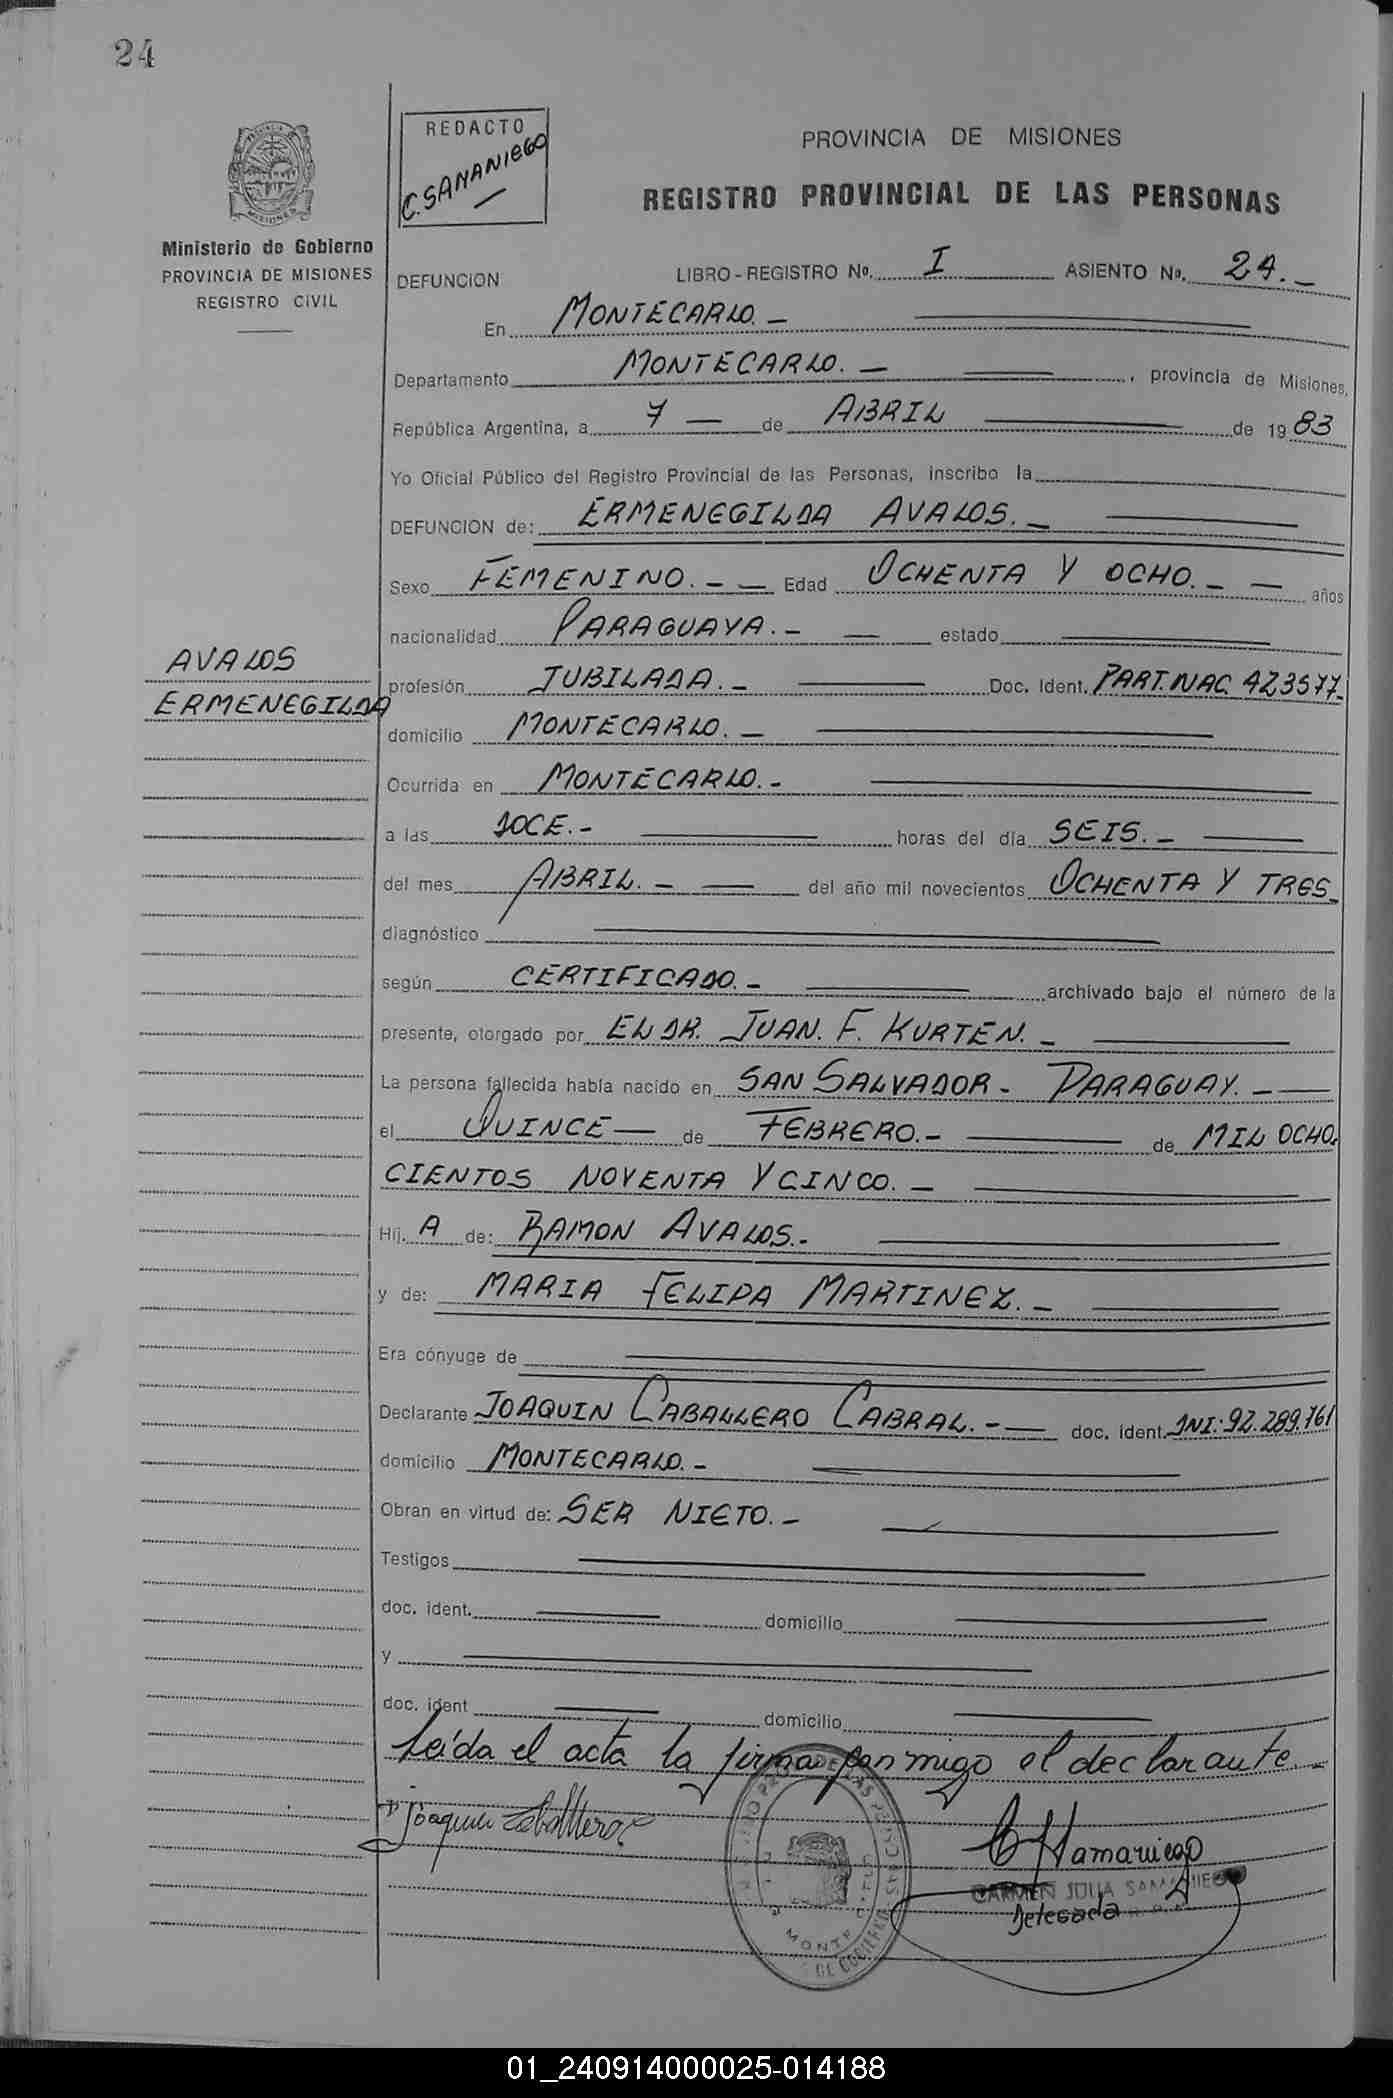 24
REDACTO
C. SAMANIEGO
PROVINCIA DE MISIONES
REGISTRO PROVINCIAL DE LAS PERSONAS
Ministerio de Gobierno
PROVINCIA DE MISIONES
REGISTRO CIVIL
DEFUNCION LIBRO-REGISTRO No. I ASIENTO No. 24.-
En MONTECARLO.-
Departamento MONTECARLO.- , provincia de Misiones,
República Argentina, a 7 — de ABRIL de 1983
Yo Oficial Público del Registro Provincial de las Personas, inscribo la
DEFUNCION de: ERMENEGILDA AVALOS.-
Sexo FEMENINO.- - Edad OCHENTA Y OCHO.- - años
nacionalidad PARAGUAYA.- — estado
AVALOS
ERMENEGILDA
profesión JUBILADA.- Doc. Ident. PART. NAC. 423577-
domicilio MONTECARLO.-
Ocurrida en MONTECARLO.-
a las DOCE.- horas del día SEIS.-
del mes ABRIL.- — del año mil novecientos OCHENTA Y TRES-
diagnóstico
según CERTIFICADO.- archivado bajo el número de la
presente, otorgado por EL DR. JUAN. F. KURTEN.-
La persona fallecida había nacido en SAN SALVADOR - PARAGUAY.-
el QUINCE — de FEBRERO.- de MIL OCHO-
CIENTOS NOVENTA Y CINCO.-
Hij. A de: RAMON AVALOS.-
y de: MARIA FELIPA MARTINEZ.-
Era cónyuge de
Declarante JOAQUIN CABALLERO CABRAL.- — doc. ident. DNI: 92.289.761
domicilio MONTECARLO.-
Obran en virtud de: SER NIETO.-
Testigos
doc. ident. domicilio
y
doc. ident domicilio
Leída el acta la firma conmigo el declarante.-
Joaquin Caballero
C J Samaniego
CARMEN JULIA SAMANIEGO
Delegada
MONTE
01_240914000025-014188